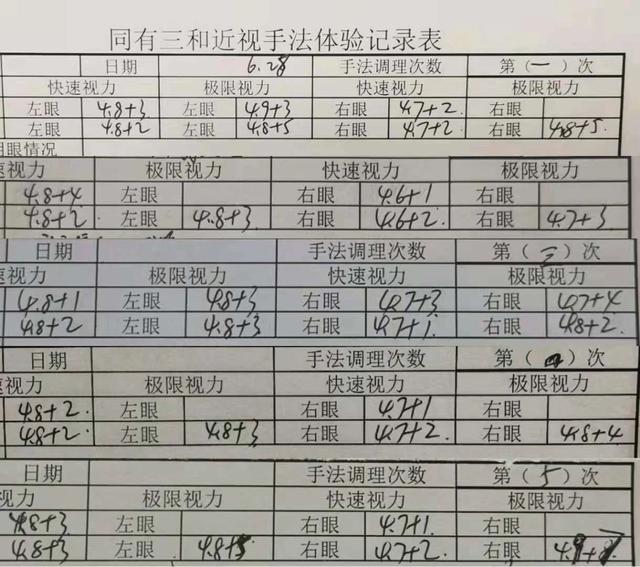 同有三和近视手法体验记录表
日期 6.28 手法调理次数 第（一）次
快速视力 极限视力 快速视力 极限视力
左眼 4.8+3 左眼 4.9+3 右眼 4.7+2 右眼
左眼 4.8+2 左眼 4.8+5 右眼 4.7+2 右眼 4.8+5
用眼情况
速视力 极限视力 快速视力 极限视力
4.8+4 左眼 右眼 4.6+1 右眼
4.8+2 左眼 4.8+3 右眼 4.6+2 右眼 4.7+3
日期 手法调理次数 第（三）次
速视力 极限视力 快速视力 极限视力
4.8+1 左眼 4.8+3 右眼 4.7+3 右眼 4.7+4
4.8+2 左眼 4.8+3 右眼 4.7+1 右眼 4.8+2
日期 手法调理次数 第（）次
速视力 极限视力 快速视力 极限视力
4.8+2 左眼 右眼 4.7+1 右眼
4.8+2 左眼 4.8+3 右眼 4.7+2 右眼 4.8+4
日期 手法调理次数 第（5）次
视力 极限视力 快速视力 极限视力
4.8+3 左眼 右眼 4.7+1 右眼
4.8+3 左眼 4.8+5 右眼 4.7+2 右眼